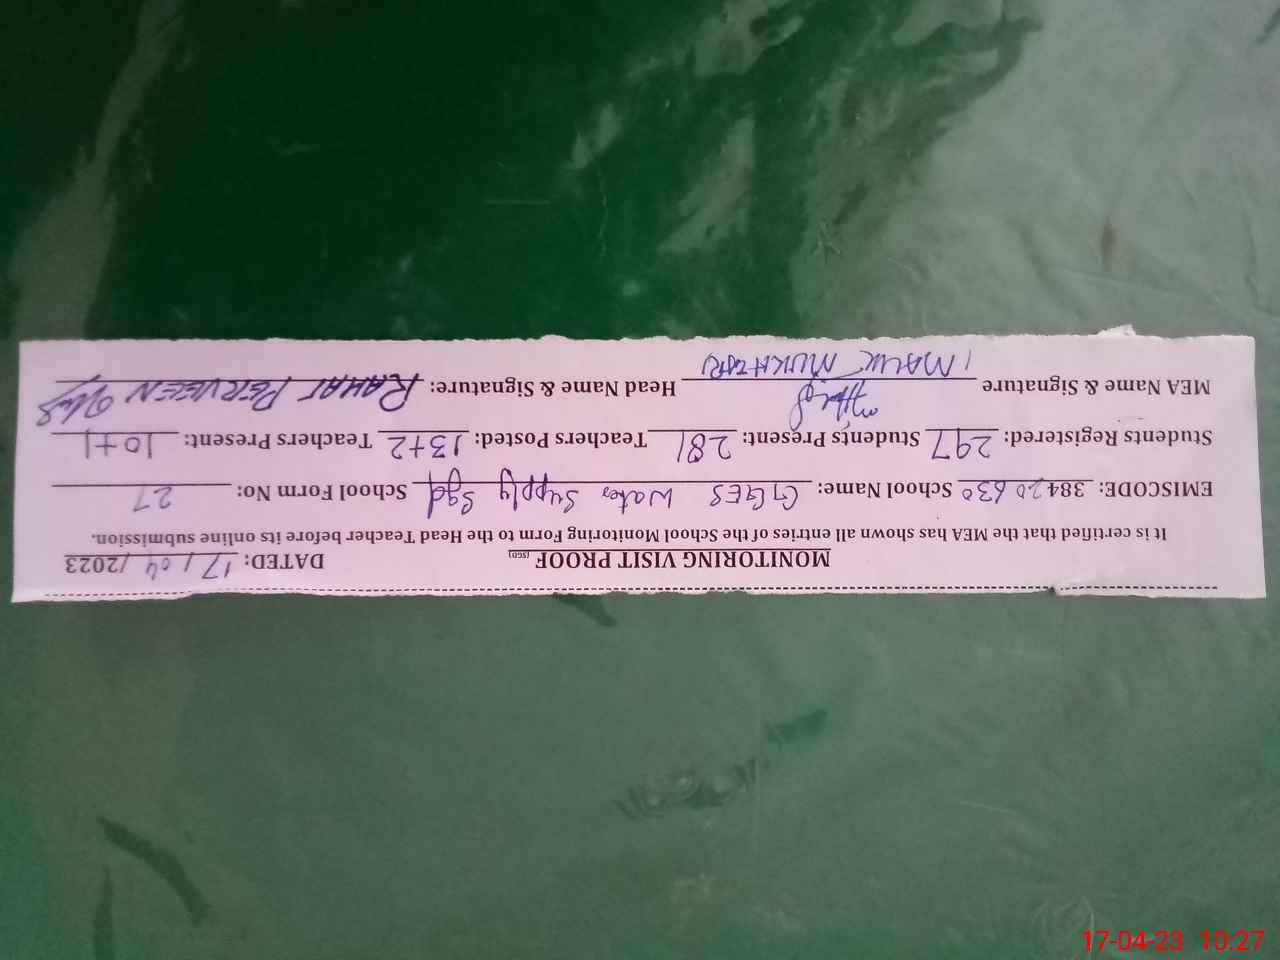 MONITORING VISIT PROOF (SGD) DATED: 17/04/2023
It is certified that the MEA has shown all entries of the School Monitoring Form to the Head Teacher before its online submission.
EMISCODE: 38420630 School Name: GGES Water Supply Sgd School Form No: 27
Students Registered: 297 Students Present: 281 Teachers Posted: 13+2 Teachers Present: 10+1
MEA Name & Signature Head Name & Signature: RAHAT PERVEEN
MALIK MUKHTAR
17-04-23 10:27